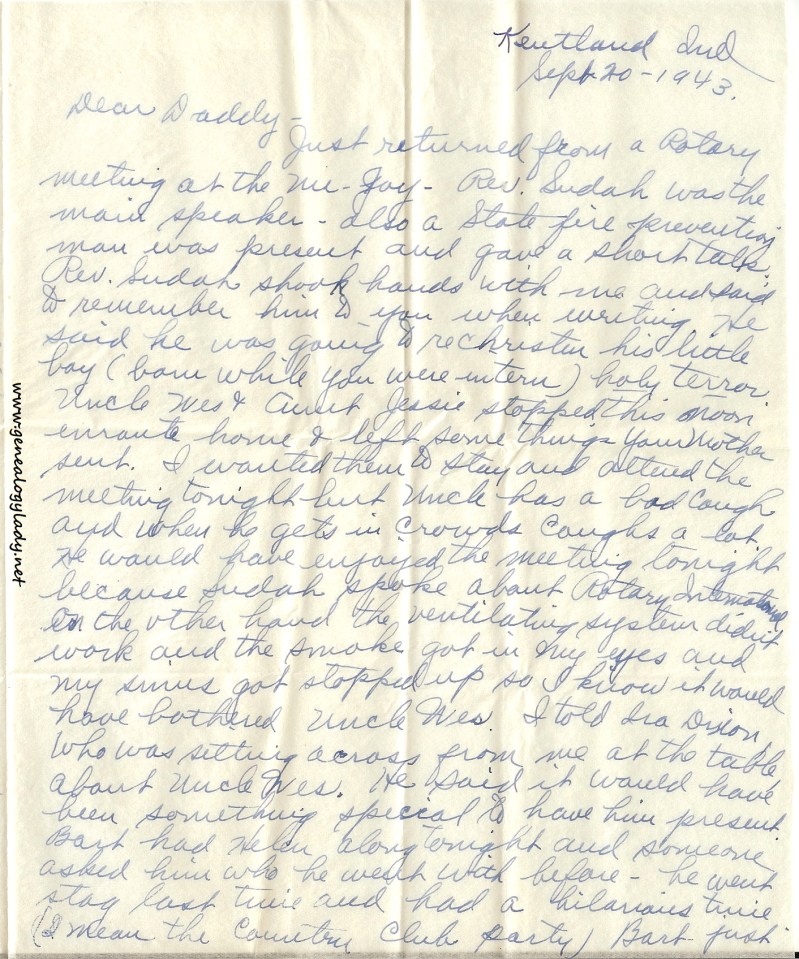 Kentland Ind
Sept 20-1943.
Dear Daddy-
Just returned from a Rotary
meeting at the Nu-Joy- Rev. Sudah was the
main speaker - also a State fire prevention
man was present and gave a short talk.
Rev. Sudah shook hands with me and said
to remember him to you when writing. He
said he was going to rechristen his little
boy (born while you were intern) holy terror.
Uncle Wes & Aunt Jessie stopped this noon
enroute home & left some things your Mother
sent. I wanted them to stay and attend the
meeting tonight but Uncle has a bad cough
and when he gets in crowds coughs a lot.
He would have enjoyed the meeting tonight
because Sudah spoke about Rotary International
On the other hand the ventilating system didn't
work and the smoke got in my eyes and
my sinus got stopped up so I know it would
have bothered Uncle Wes. I told Ira Dixon
who was sitting across from me at the table
about Uncle Wes. He said it would have
been something special to have him present.
Bart had Helen along tonight and someone
asked him who he went with before - he went
stag last time and had a hilarious time
(I mean the Country Club party) Bart just
www.genealogylady.net